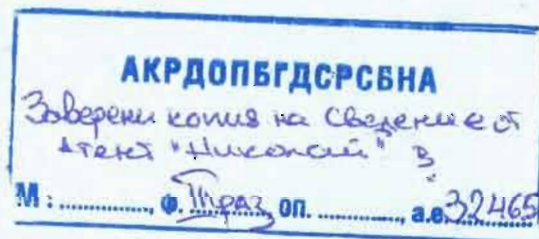 АКРДОПБГДСРСБНА
Заверени копия на сведение от
Агент "Николай" В
М : ............, ф. III раз, оп. ............, а.е. 32465